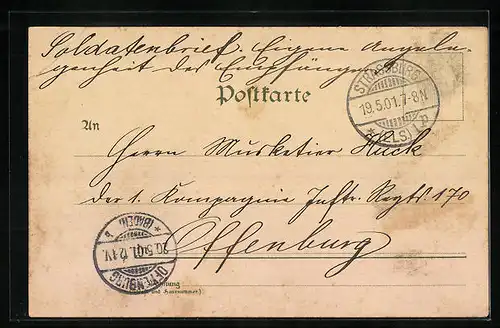 Soldatenbrief. Eigene Angele-
genheit des Empfängers
Postkarte
STRASSBURG
19.5.01.7-8N
* (ELS.) 1p
An
Herrn Musketier Huck
der 1. Kompagnie Inftr. Regts. 170
Offenburg
* (BADEN)
20.5.01.12-1V.
OFFENBURG
Wohnung
und Hausnummer)